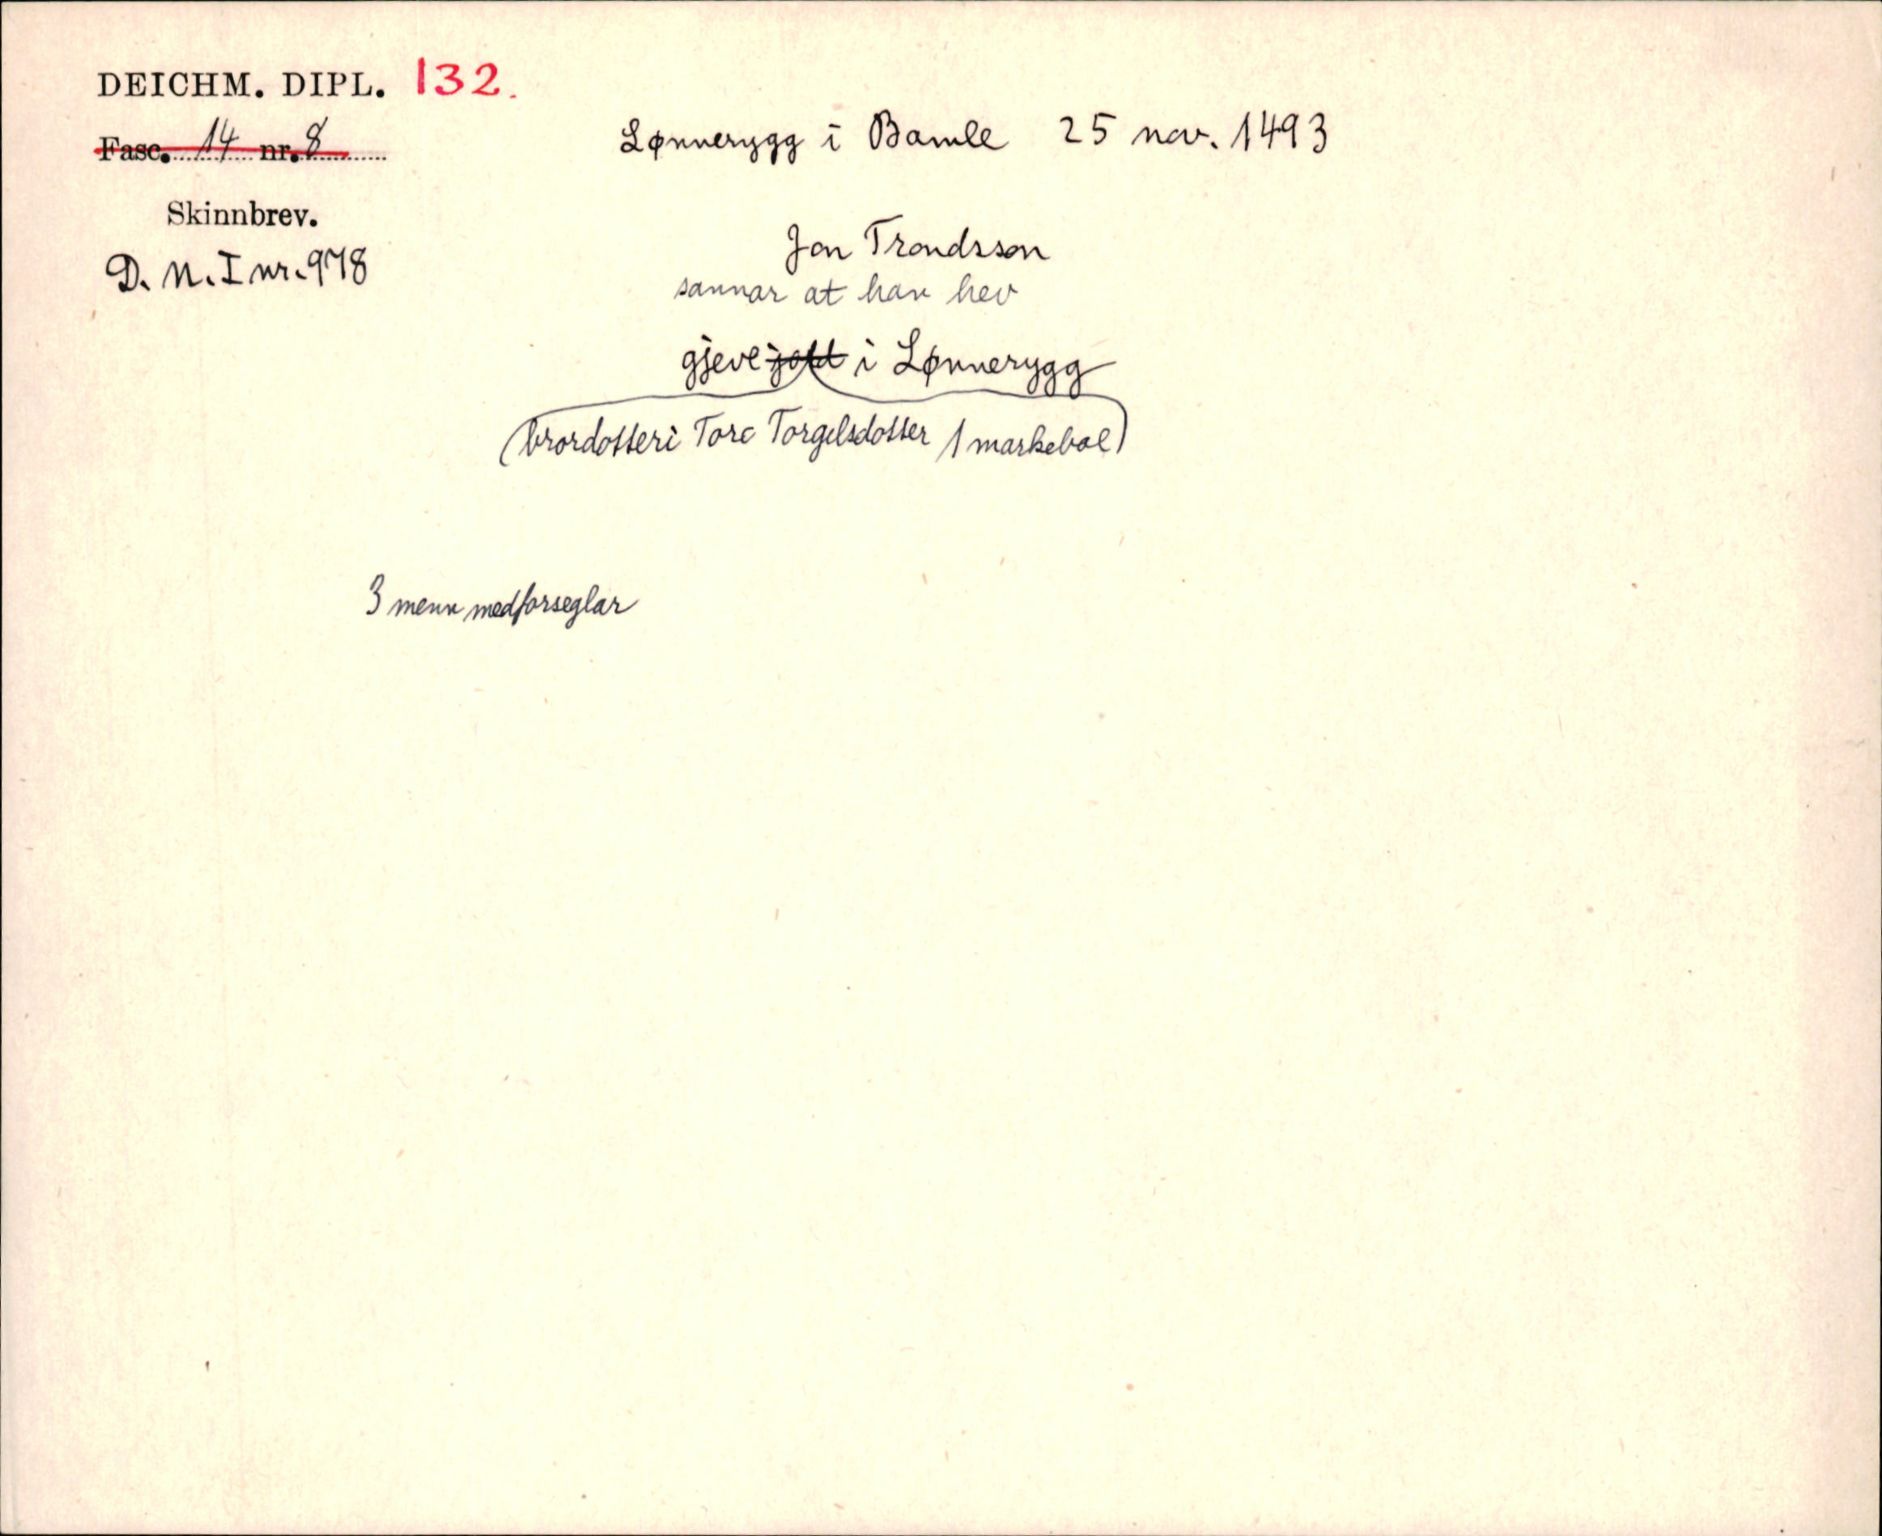 DEICHM. DIPL. 132.
Fasc. 14 nr. 8
Skinnbrev.
D. N. I nr. 978
Lønnerygg i Bamle 25 nov. 1493
Jon Trondsson
sannar at han hev
gjeve jord i Lønnerygg
(brordotteri Tore Torgilsdotter 1 markebol)
3 menn medforseglar